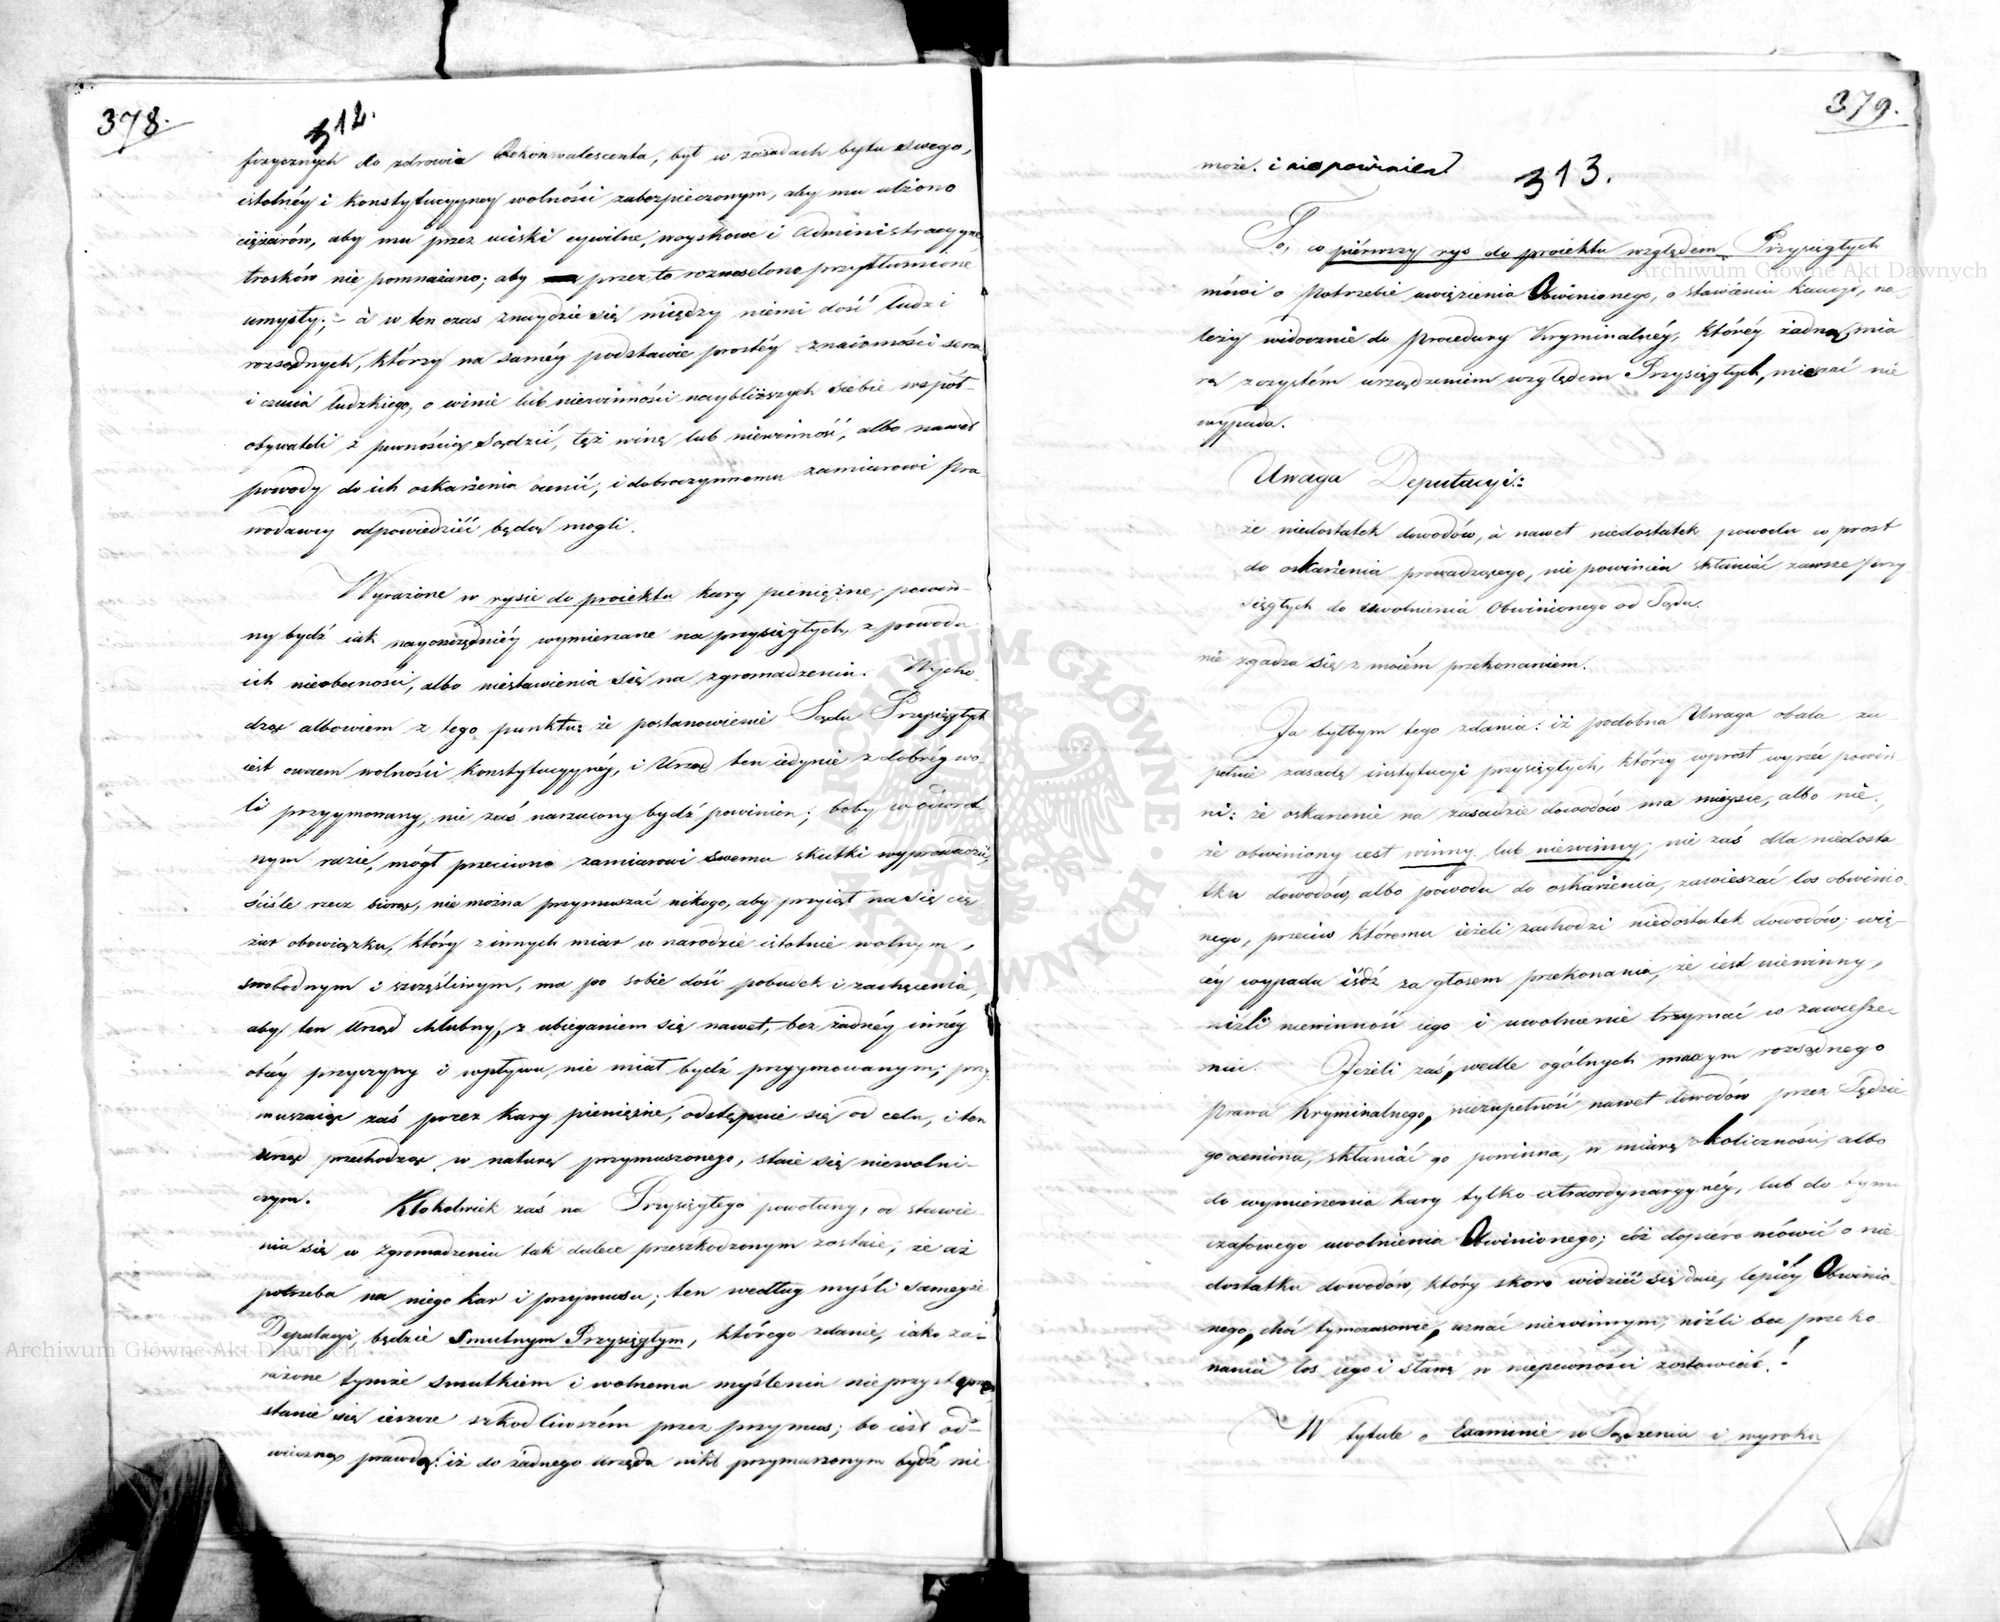 378.
312.
fizycznych do zdrowia Rekonwalescenta, był w zasadach bytu swego,
istotnéy i konstytucyyney wolności zabezpieczonym, aby mu ulżono
ciężarów, aby mu przez uciski cywilne, woyskowe i administracyyne
trosków nie pomnażano; aby przez to rozweselono przytłumione
umysły; – à w ten czas znaydzie się między niemi dość ludzi
rozsądnych, którzy na saméy podstawie prostéy znaiomości serca
i czucia ludzkiego, o winie lub niewinności naybliższych siebie współ-
obywateli z pewnością sądzić, téż winę lub niewinność, albo nawet
powody do ich oskarżenia ocenić, i dobroczynnemu zamiarowi Pra
wodawcy odpowiedzieć będą mogli.
Wyrażone w rysie do proiektu kary pieniężne, powin-
ny bydź iak nayoszczędniéy wymierzane na przysięgłych, z powodu
ich nieobecności, albo niestawienia się na zgromadzenia. Wycho
dzę albowiem z tego punktu, że postanowienie Sądu Przysięgłych
iest owocem wolności konstytucyynéy, i Urząd ten iedynie z dobréy wo-
li przyymowany, nie zaś narzucony bydź powinien; boby w odwrot
nym razie, mógł przeciwne zamiarowi swemu skutki wyprowadzić,
ściśle rzecz biorąc, nie można przymuszać nikogo, aby przyiął na się cię
żar obowiązku, który z innych miar w narodzie istotnie wolnym,
swobodnym i szczęśliwym, ma po sobie dość pobudek i zachęcenia,
aby ten Urząd chlubny, z ubieganiem się nawet, bez żadnéy innéy
obcéy przyczyny i wpływu, nie miał bydź przyymowanym; przy
muszaiąc zaś przez kary pieniężne, odstępuie się od celu, i ten
Urząd przechodząc w naturę przymuszonego, staie się niewolni-
czym. Ktokolwiek zaś na Przysięgłego powołany, od stawie-
nia się w zgromadzeniu tak dalece przeszkodzonym zostaie, że aż
potrzeba na niego kar i przymusu; ten według myśli samejże
Deputacyi, będzie smutnym Przysięgłym, którego zdanie, iako za-
rażone tymże smutkiem i wolnemu myśleniu nie przystępne
stanie się ieszcze szkodliwszém przez przymus; bo iest od-
wieczną prawdą: iż do żadnego urzędu nikt przymuszonym bydź nie
379.
313.
może. i nie powinien
To, co piérwszy rys do proiektu względem Przysięgłych
mówi o potrzebie uwięzienia Obwinionego, o stawieniu kaucyi, na-
leży widocznie do Procedury Kryminalnéy, któréy żadną mia
rą z czystém urządzeniem względem Przysięgłych, mieszać nie
wypada.
Uwaga Deputacyi:
że niedostatek dowodów, à nawet niedostatek powodu w prost
do oskarżenia prowadzącego, nie powinien skłaniać zawsze przy
sięgłych do uwolnienia Obwinionego od Sądu.
nie zgadza się z moiém przekonaniem.
Ja byłbym tego zdania: iż podobna Uwaga obala zu
pełnie zasadę instytucyi przysięgłych, którzy wprost wyrzéc powin
ni: że oskarżenie na zasadzie dowodów ma mieysce, albo nie,
że obwiniony iest winny lub niewinny, nie zaś dla niedosta
tku dowodów, albo powodu do oskarżenia, zawieszać los obwinio
nego, przeciw któremu ieżeli zachodzi niedostatek dowodów, wię-
céy wypada iśdź za głosem przekonania, że iest niewinny,
niźli niewinność iego i uwolnienie trzymać w zawiesze-
niu. Jeżeli zaś, wedle ogólnych maxym rozsądnego
Prawa Kryminalnego, niezupełność nawet dowodów przez Sędzie
go oceniona, skłaniać go powinna, w miarę okoliczności, albo
do wymierzenia kary tylko extraordynaryynéy, lub do tym
czasowego uwolnienia Obwinionego; cóż dopiéro mówić o nie
dostatku dowodów, który skoro widzieć się daie, lepiéy Obwinio-
nego, choć tymczasowie, uznać niewinnym, niźli bez przeko
nania los iego i sławę w niepewności zostawiać.!
W tytule o Examinie w Sądzeniu i wyroku
Archiwum Główne Akt Dawnych
Archiwum Główne Akt Dawnych
ARCHIWUM GŁÓWNE AKT DAWNYCH